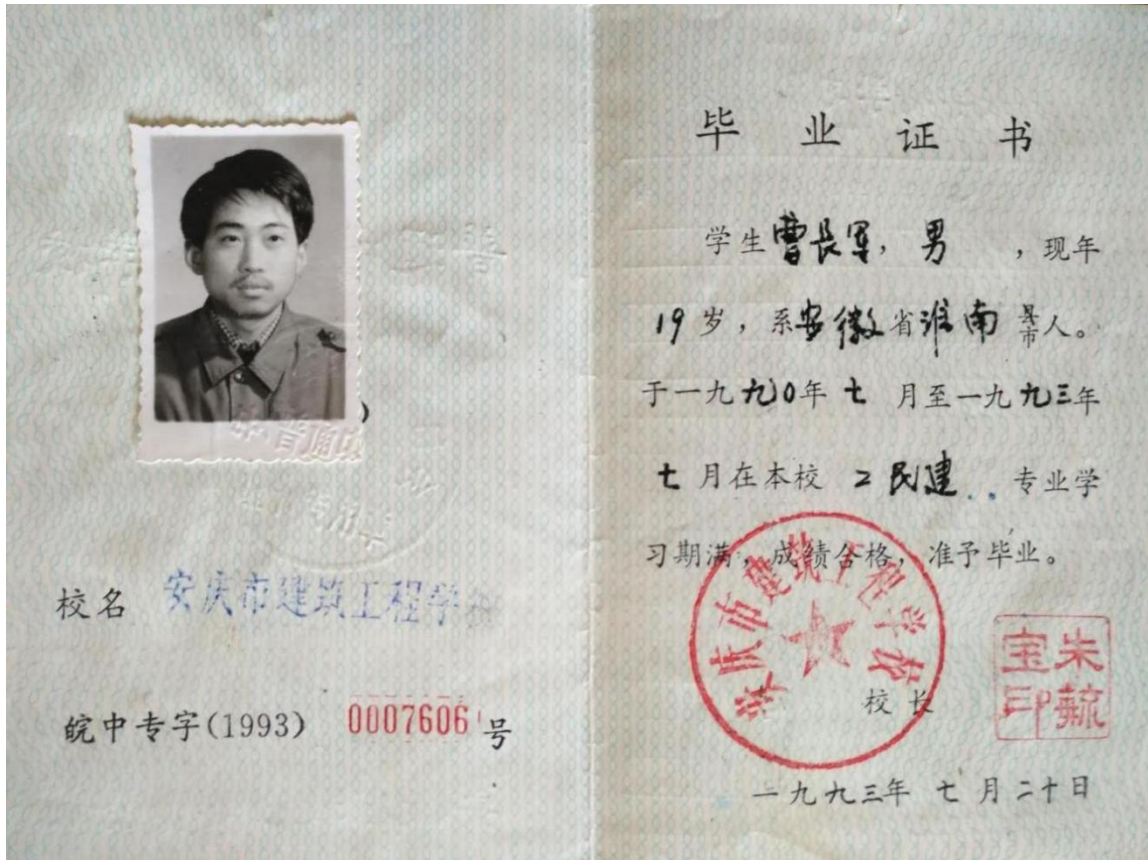 校名 安庆市建筑工程学校
皖中专字(1993) 0007606 号
毕业证书
学生曹長军,男 ,现年
19岁,系安徽省淮南县市人。
于一九九0年七月至一九九三年
七月在本校工民建..专业学
习期满,成绩合格,准予毕业。
安庆市建筑工程学校
校长
朱毓宝印
一九九三年七月二十日